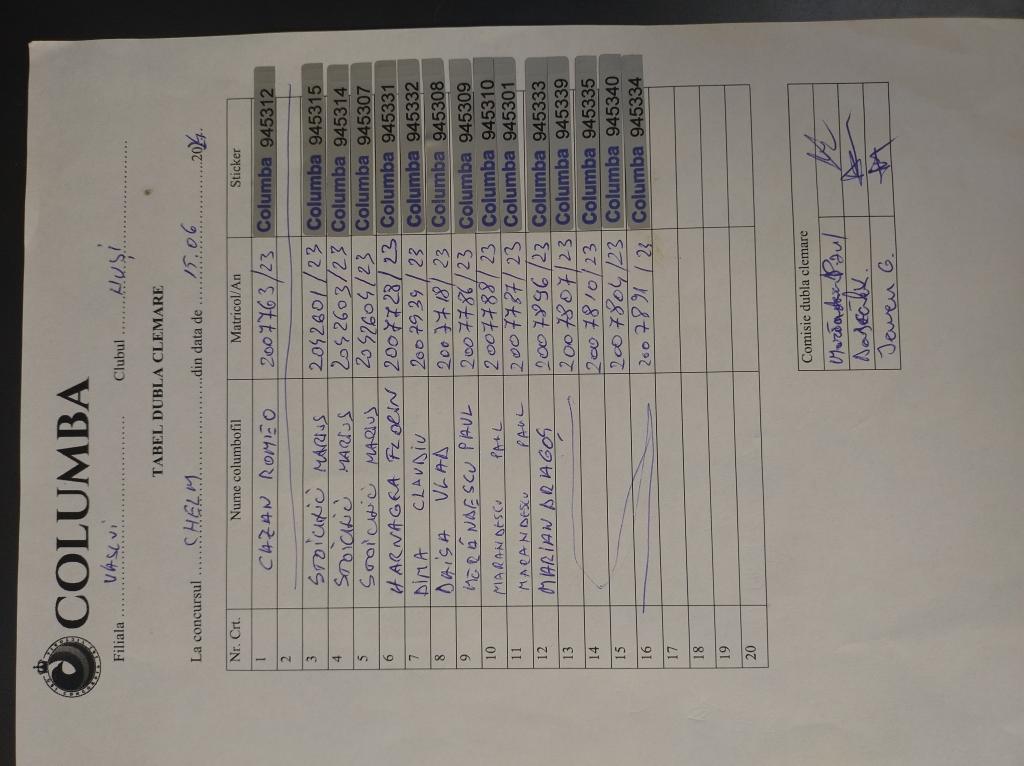 COLUMBA
Filiala VASLUI Clubul HUŞI
TABEL DUBLA CLEMARE
La concursul CHELM din data de 15.06 2024.
Nr. Crt. Nume columbofil Matricol/An Sticker
1 CAZAN ROMEO 2007763/23 Columba 945312
2
3 STOICIUC MARIUS 2042601/23 Columba 945315
4 STOICIUC MARIUS 2042603/23 Columba 945314
5 STOICIUC MARIUS 2042604/23 Columba 945307
6 HARNAGEA FLORIN 2007728/23 Columba 945331
7 DIMA CLAUDIU 2007939/23 Columba 945332
8 VLAD 2007718/23 Columba 945308
9 MĂRĂNDESCU PAUL 2007786/23 Columba 945309
10 MARANDESCU PAUL 2007788/23 Columba 945310
11 MARANDESCU PAUL 2007787/23 Columba 945301
12 MARIAN DRAGOŞ 2007896/23 Columba 945333
13 2007807/23 Columba 945339
14 2007810/23 Columba 945335
15 2007804/23 Columba 945340
16 2007891/23 Columba 945334
17
18
19
20
Comisie dubla clemare